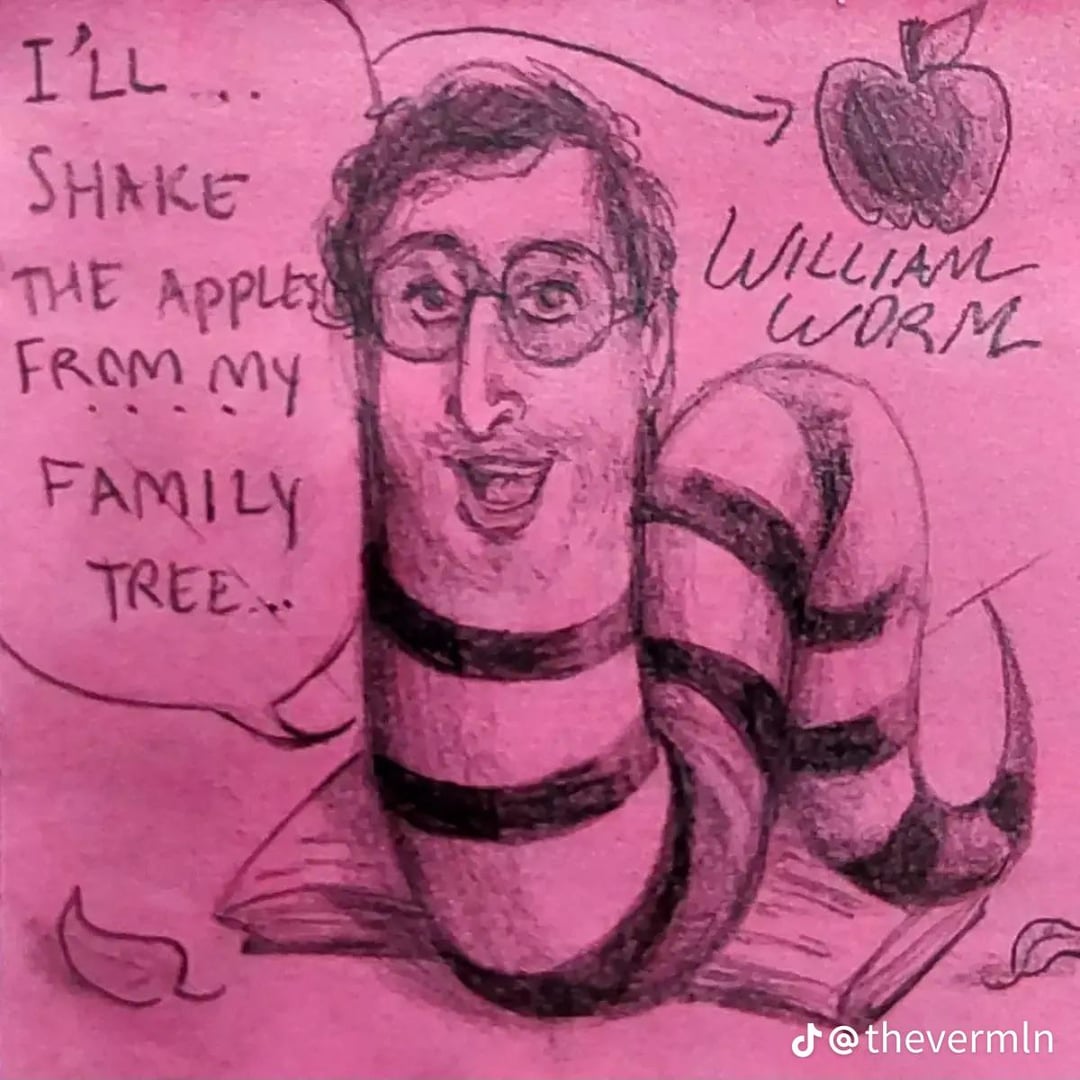 I'LL ...
SHAKE
THE APPLES
FROM MY
....
FAMILY
TREE...
WILLIAM
WORM
@thevermln